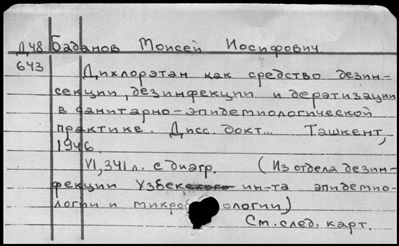 Д48 Баданов Моисей Иосифович
643
Дихлорэтан как средство дезин-
секции, дезинфекции и дератизации
в санитарно-эпидемиологической
практике. Дисс. докт... Ташкент,
1946.
VI, 341 л. с диагр. (Из отдела дезин-
фекции Узбекского ин-та эпидемио-
логии и микро ологии)
См. след. карт.